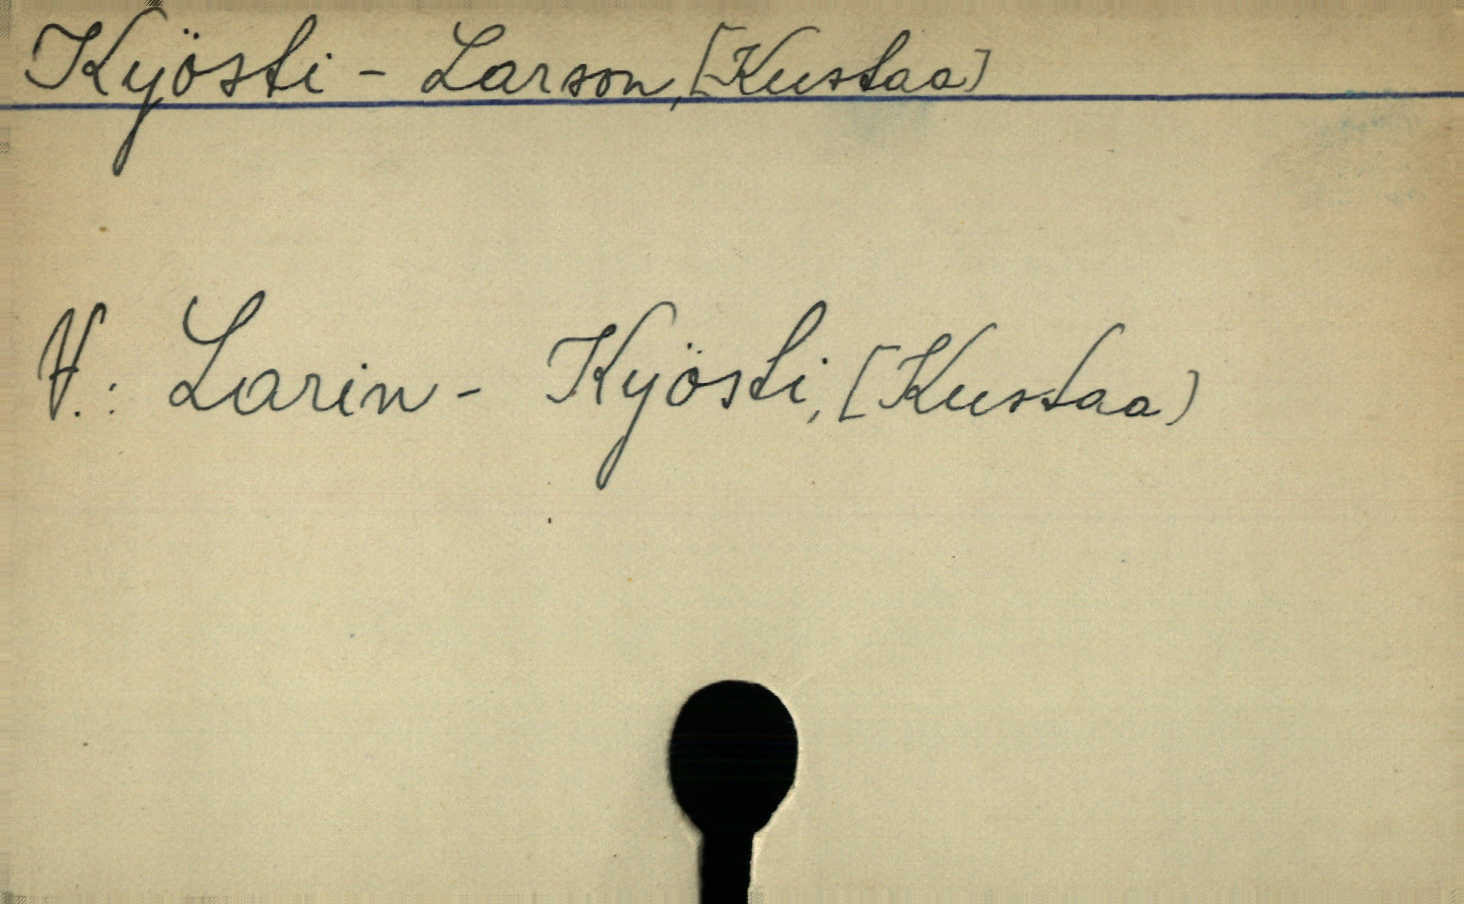 Kyösti - Larson, [Kustaa]
V.: Larin - Kyösti, [Kustaa]